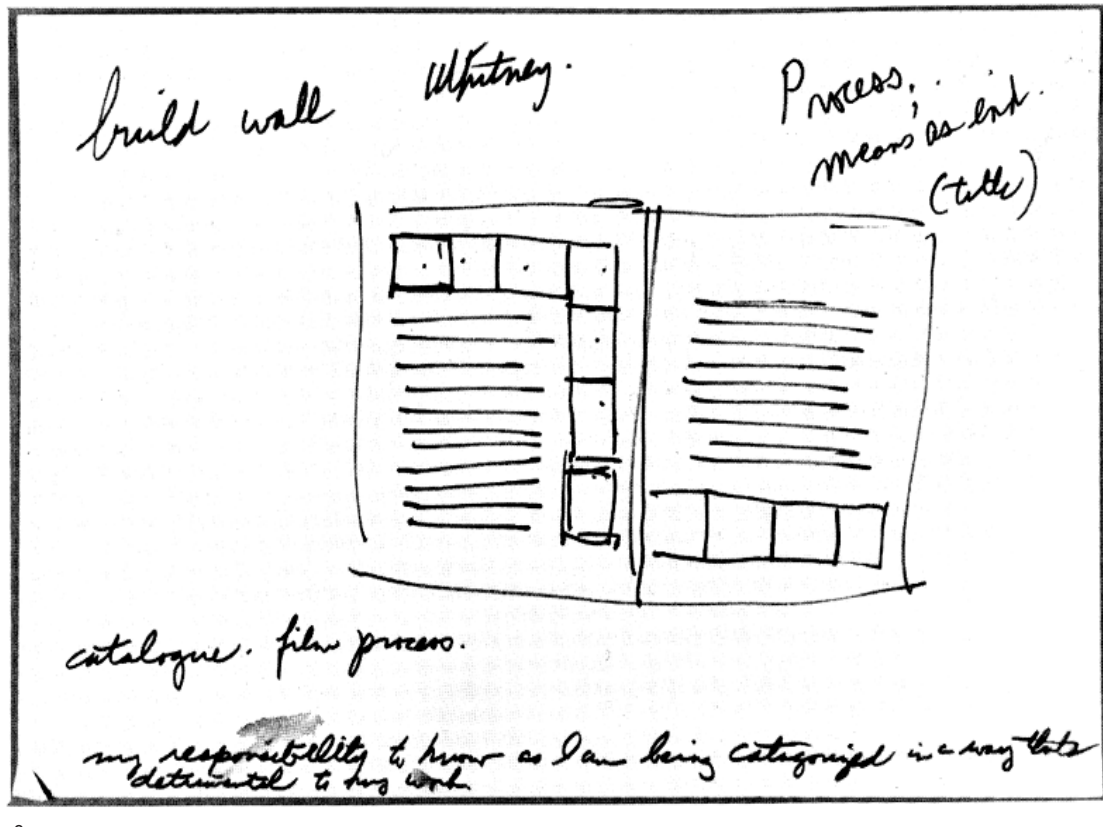 build wall
Whitney.
Process,
means as end.
(title)
catalogue. film process.
my responsibility to know as I am being categorized in a way thats
detrimental to my work